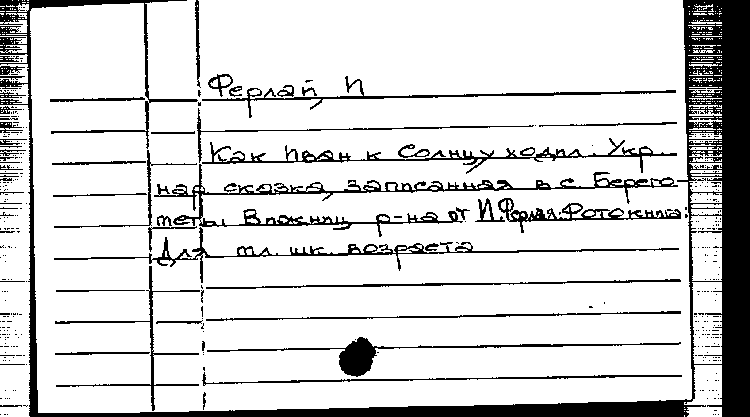 Ферлай, И
Как Иван к Солнцу ходил. Укр.
нар. сказка, записанная в с. Берего-
меты Вижниц. р-на от И. Ферлая. Фотокнига.
Для мл. шк. возраста